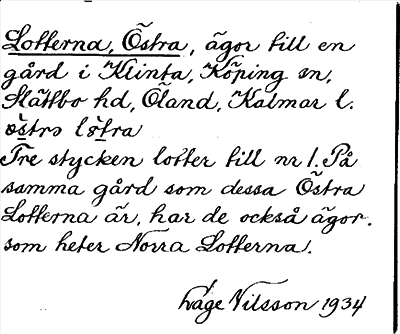 Lotterna, Östra, ägor till en
gård i Klinta, Köping sn,
Slättbo hd, Öland, Kalmar l.
östrɔ lotra
Tre stycken lotter till nr 1. På
samma gård som dessa Östra
Lotterna är, har de också ägor.
som heter Norra Lotterna.
Åge Nilsson 1934